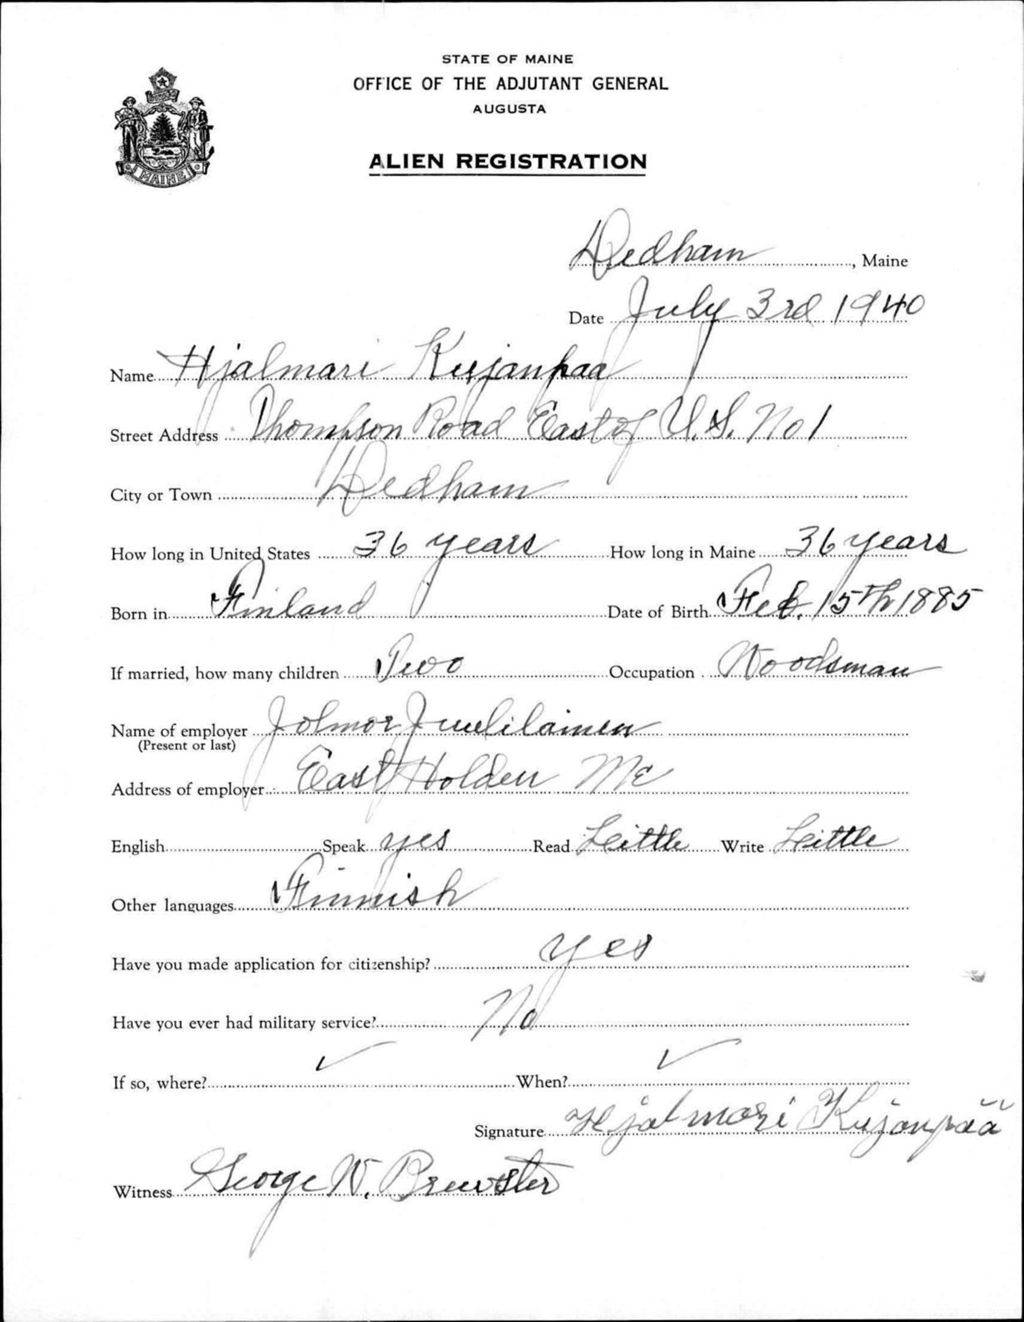 STATE OF MAINE
OFFICE OF THE ADJUTANT GENERAL
AUGUSTA
ALIEN REGISTRATION
MAINE
Dedham, Maine
Date July 3rd 1940
Name Hjalmari Kujanpaa
Street Address Thompson Road East of U.S. No 1
City or Town Dedham
How long in United States 36 years How long in Maine 36 years
Born in Finland Date of Birth Feb. 15th 1885
If married, how many children Two Occupation Woodsman
Name of employer Jolmor Juulilainen
(Present or last)
Address of employer East Holden Me
English Speak yes Read Little Write Little
Other languages Finnish
Have you made application for citizenship? Yes
Have you ever had military service? No
If so, where? ✓ When? ✓
Signature Hjalmari Kujanpää
Witness George W. Brewster